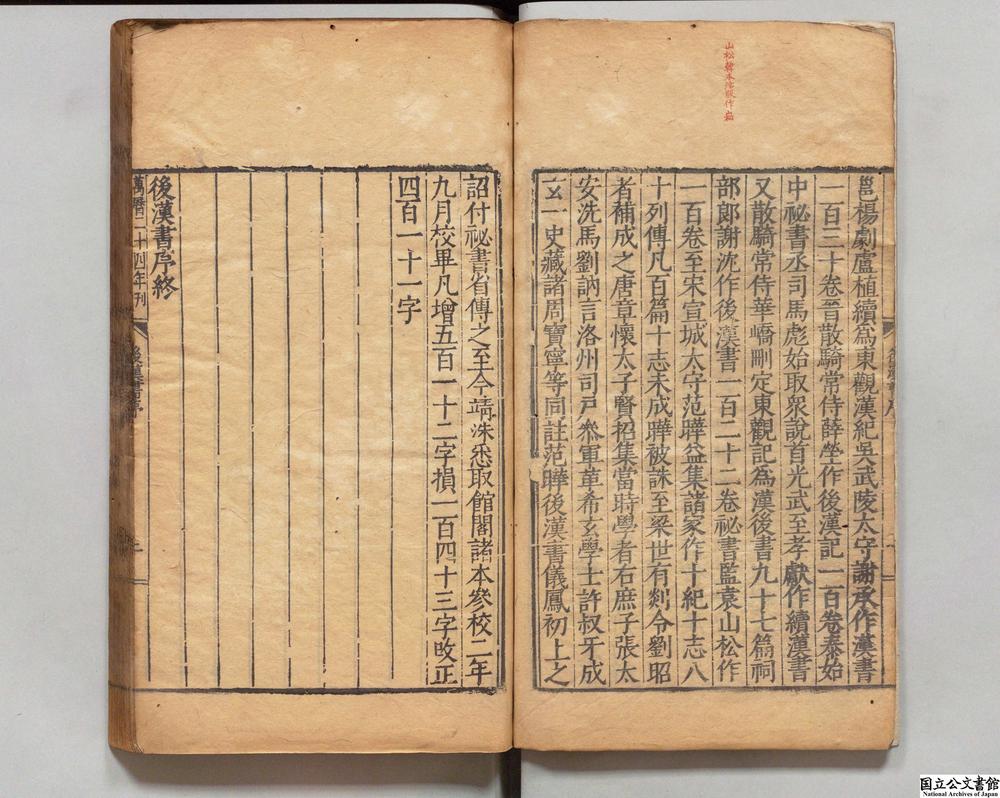 山松舊本作崧
邕楊彪盧植續爲東觀漢紀吳武陵太守謝承作漢書
一百三十卷晉散騎常侍薛瑩作後漢記一百卷泰始
中祕書丞司馬彪始取衆說首光武至孝獻作續漢書
又散騎常侍華嶠刪定東觀記爲漢後書九十七篇祠
部郎謝沈作後漢書一百二十二卷祕書監袁山松作
一百卷至宋宣城太守范曄益集諸家作十紀十志八
十列傳凡百篇十志未成曄被誅至梁世有剡令劉昭
者補成之唐章懷太子賢招集當時學者右庶子張太
安洗馬劉訥言洛州司戸參軍革希玄學士許叔牙成
玄一史藏諸周寶寧等同註范曄後漢書儀鳳初上之
後漢書序
詔付祕書省傳之至今靖洙悉取館閣諸本參校二年
九月校畢凡增五百一十二字損一百四十三字改正
四百一十一字
後漢書序終
萬曆二十四年刊
後漢書序
國立公文書館
National Archives of Japan